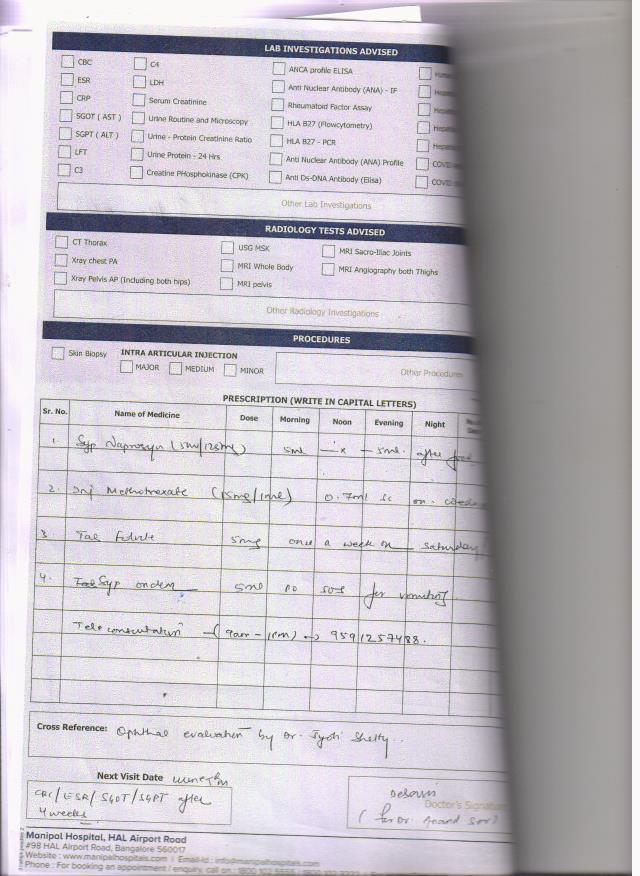 LAB INVESTIGATIONS ADVISED
CBC C4 ANCA profile ELISA
ESR LDH Anti Nuclear Antibody (ANA) - IF
CRP Serum Creatinine Rheumatoid Factor Assay
SGOT ( AST ) Urine Routine and Microscopy HLA B27 (Flowcytometry)
SGPT ( ALT ) Urine - Protein Creatinine Ratio HLA B27 - PCR
LFT Urine Protein - 24 Hrs Anti Nuclear Antibody (ANA) Profile COVID
C3 Creatine PHosphokinase (CPK) Anti Ds-DNA Antibody (Elisa) COVID
Other Lab Investigations
RADIOLOGY TESTS ADVISED
CT Thorax USG MSK MRI Sacro-Iliac Joints
Xray chest PA MRI Whole Body MRI Angiography both Thighs
Xray Pelvis AP (Including both hips) MRI pelvis
Other Radiology Investigations
PROCEDURES
Skin Biopsy INTRA ARTICULAR INJECTION
MAJOR MEDIUM MINOR Other Procedures
PRESCRIPTION (WRITE IN CAPITAL LETTERS)
Sr. No. Name of Medicine Dose Morning Noon Evening Night
1. Syp Naprosyn 5ml — x — 5ml. after food
2. Inj Methotrexate (15mg/1ml) 0.7ml sc on
3 Tab Folvite 5mg once a week on Saturday
4. Syp ondem 5ml po sos for vomiting
Teleconsultation (9am - 1pm) → 9591257488.
Cross Reference: Ophthal evaluation by Dr. Jyoti Shetty.
Next Visit Date
CBC/ESR/SGOT/SGPT after
4 weeks.
Doctor's Signature
(for Dr. Anand
Manipal Hospital, HAL Airport Road
#98 HAL Airport Road, Bangalore 560017
Website : www.manipalhospitals.com I Email-Id : info@manipalhospitals.com
Phone : For booking an appointment / enquiry, call on : 1800 102 5555